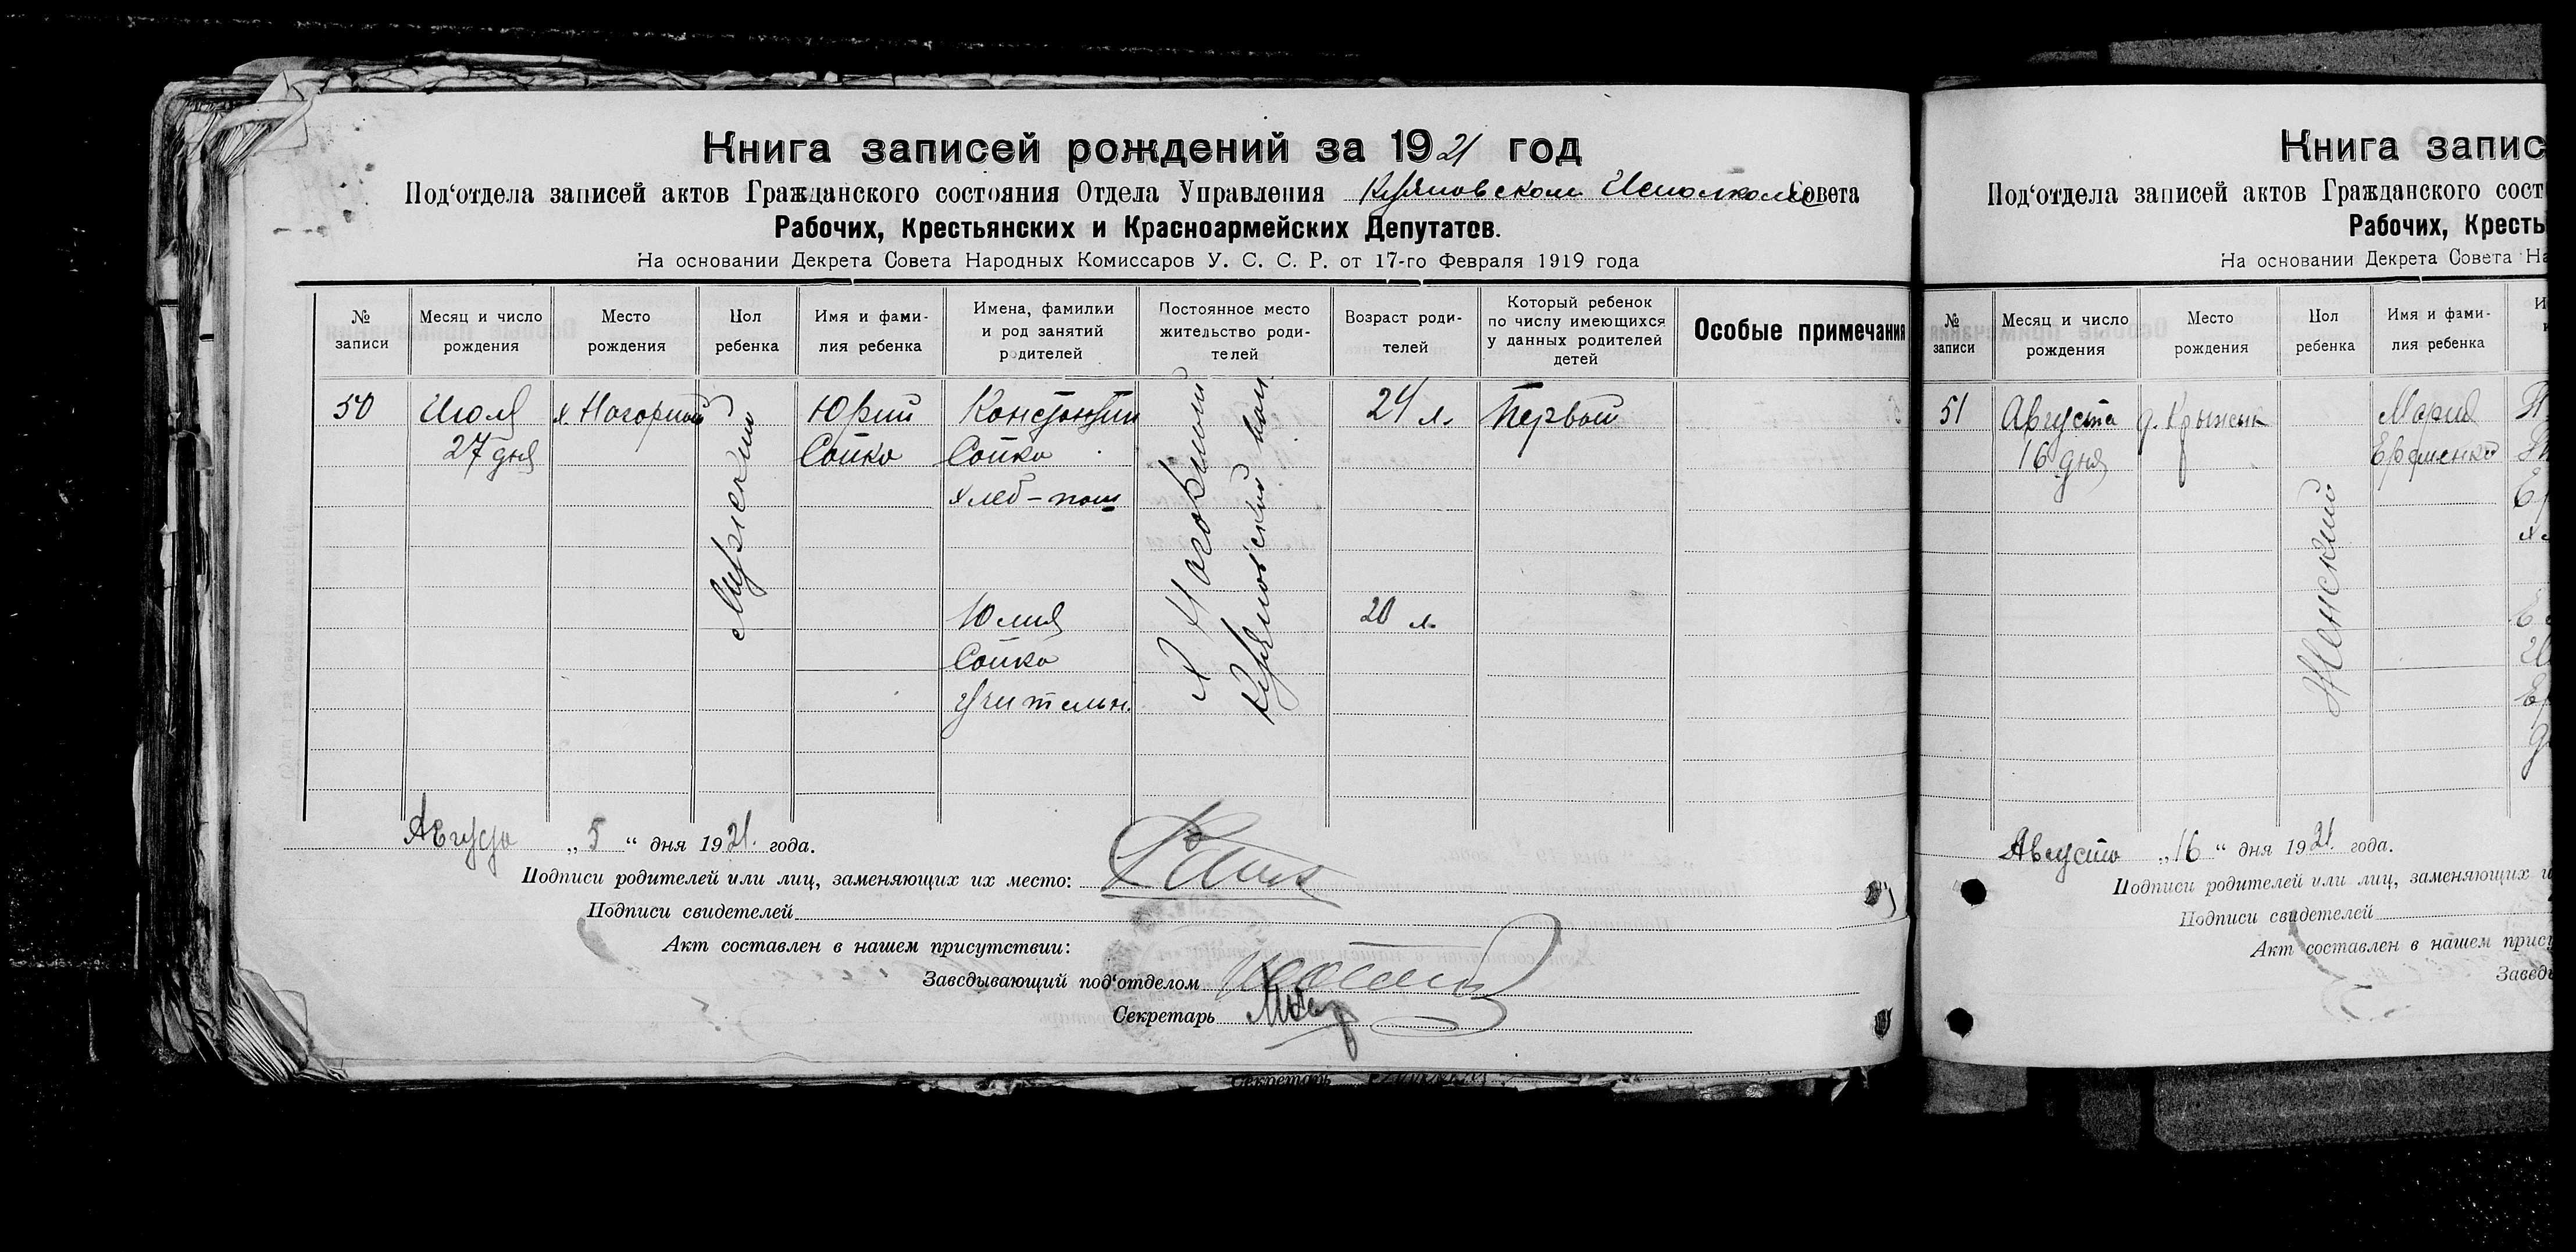 Книга записей рождений за 1921 год
Под'отдела записей актов Гражданского состояния Отдела Управления Совета
Рабочих, Крестьянских и Красноармейских Депутатов.
На основании Декрета Совета Народных Комиссаров У. С. С. Р. от 17-го Февраля 1919 года
№ записи
Месяц и число рождения
Место рождения
Пол ребенка
Имя и фамилия ребенка
Имена, фамилки и род занятий родителей
Постоянное место жительство родителей
Возраст родителей
Который ребенок по числу имеющихся у данных родителей детей
Особые примечания
50
Июля
27 дня
х. Нагорный
Мужский
Юрий
Сойко
Констянтин
Сойко
хлеб-паш
Юлия
Сойко
учительн.
х Нагорный
24 л.
20 л.
Первый
Августа „5“ дня 1921. года.
Подписи родителей или лиц, заменяющих их место:
Подписи свидетелей
Акт составлен в нашем присутствии:
Заведывающий под'отделом
Секретарь
Секретарь
Книга запис
Под'отдела записей актов Гражданского сост
Рабочих, Кресть
На основании Декрета Совета На
№ записи
Месяц и число рождения
Место рождения
Пол ребенка
Имя и фамилия ребенка
51
Августа
16 дня
Женский
Мария
Ефеменко
Августа „16“ дня 1921. года.
Подписи родителей или лиц, заменяющих и
Подписи свидетелей
Акт составлен в нашем прису
Завед